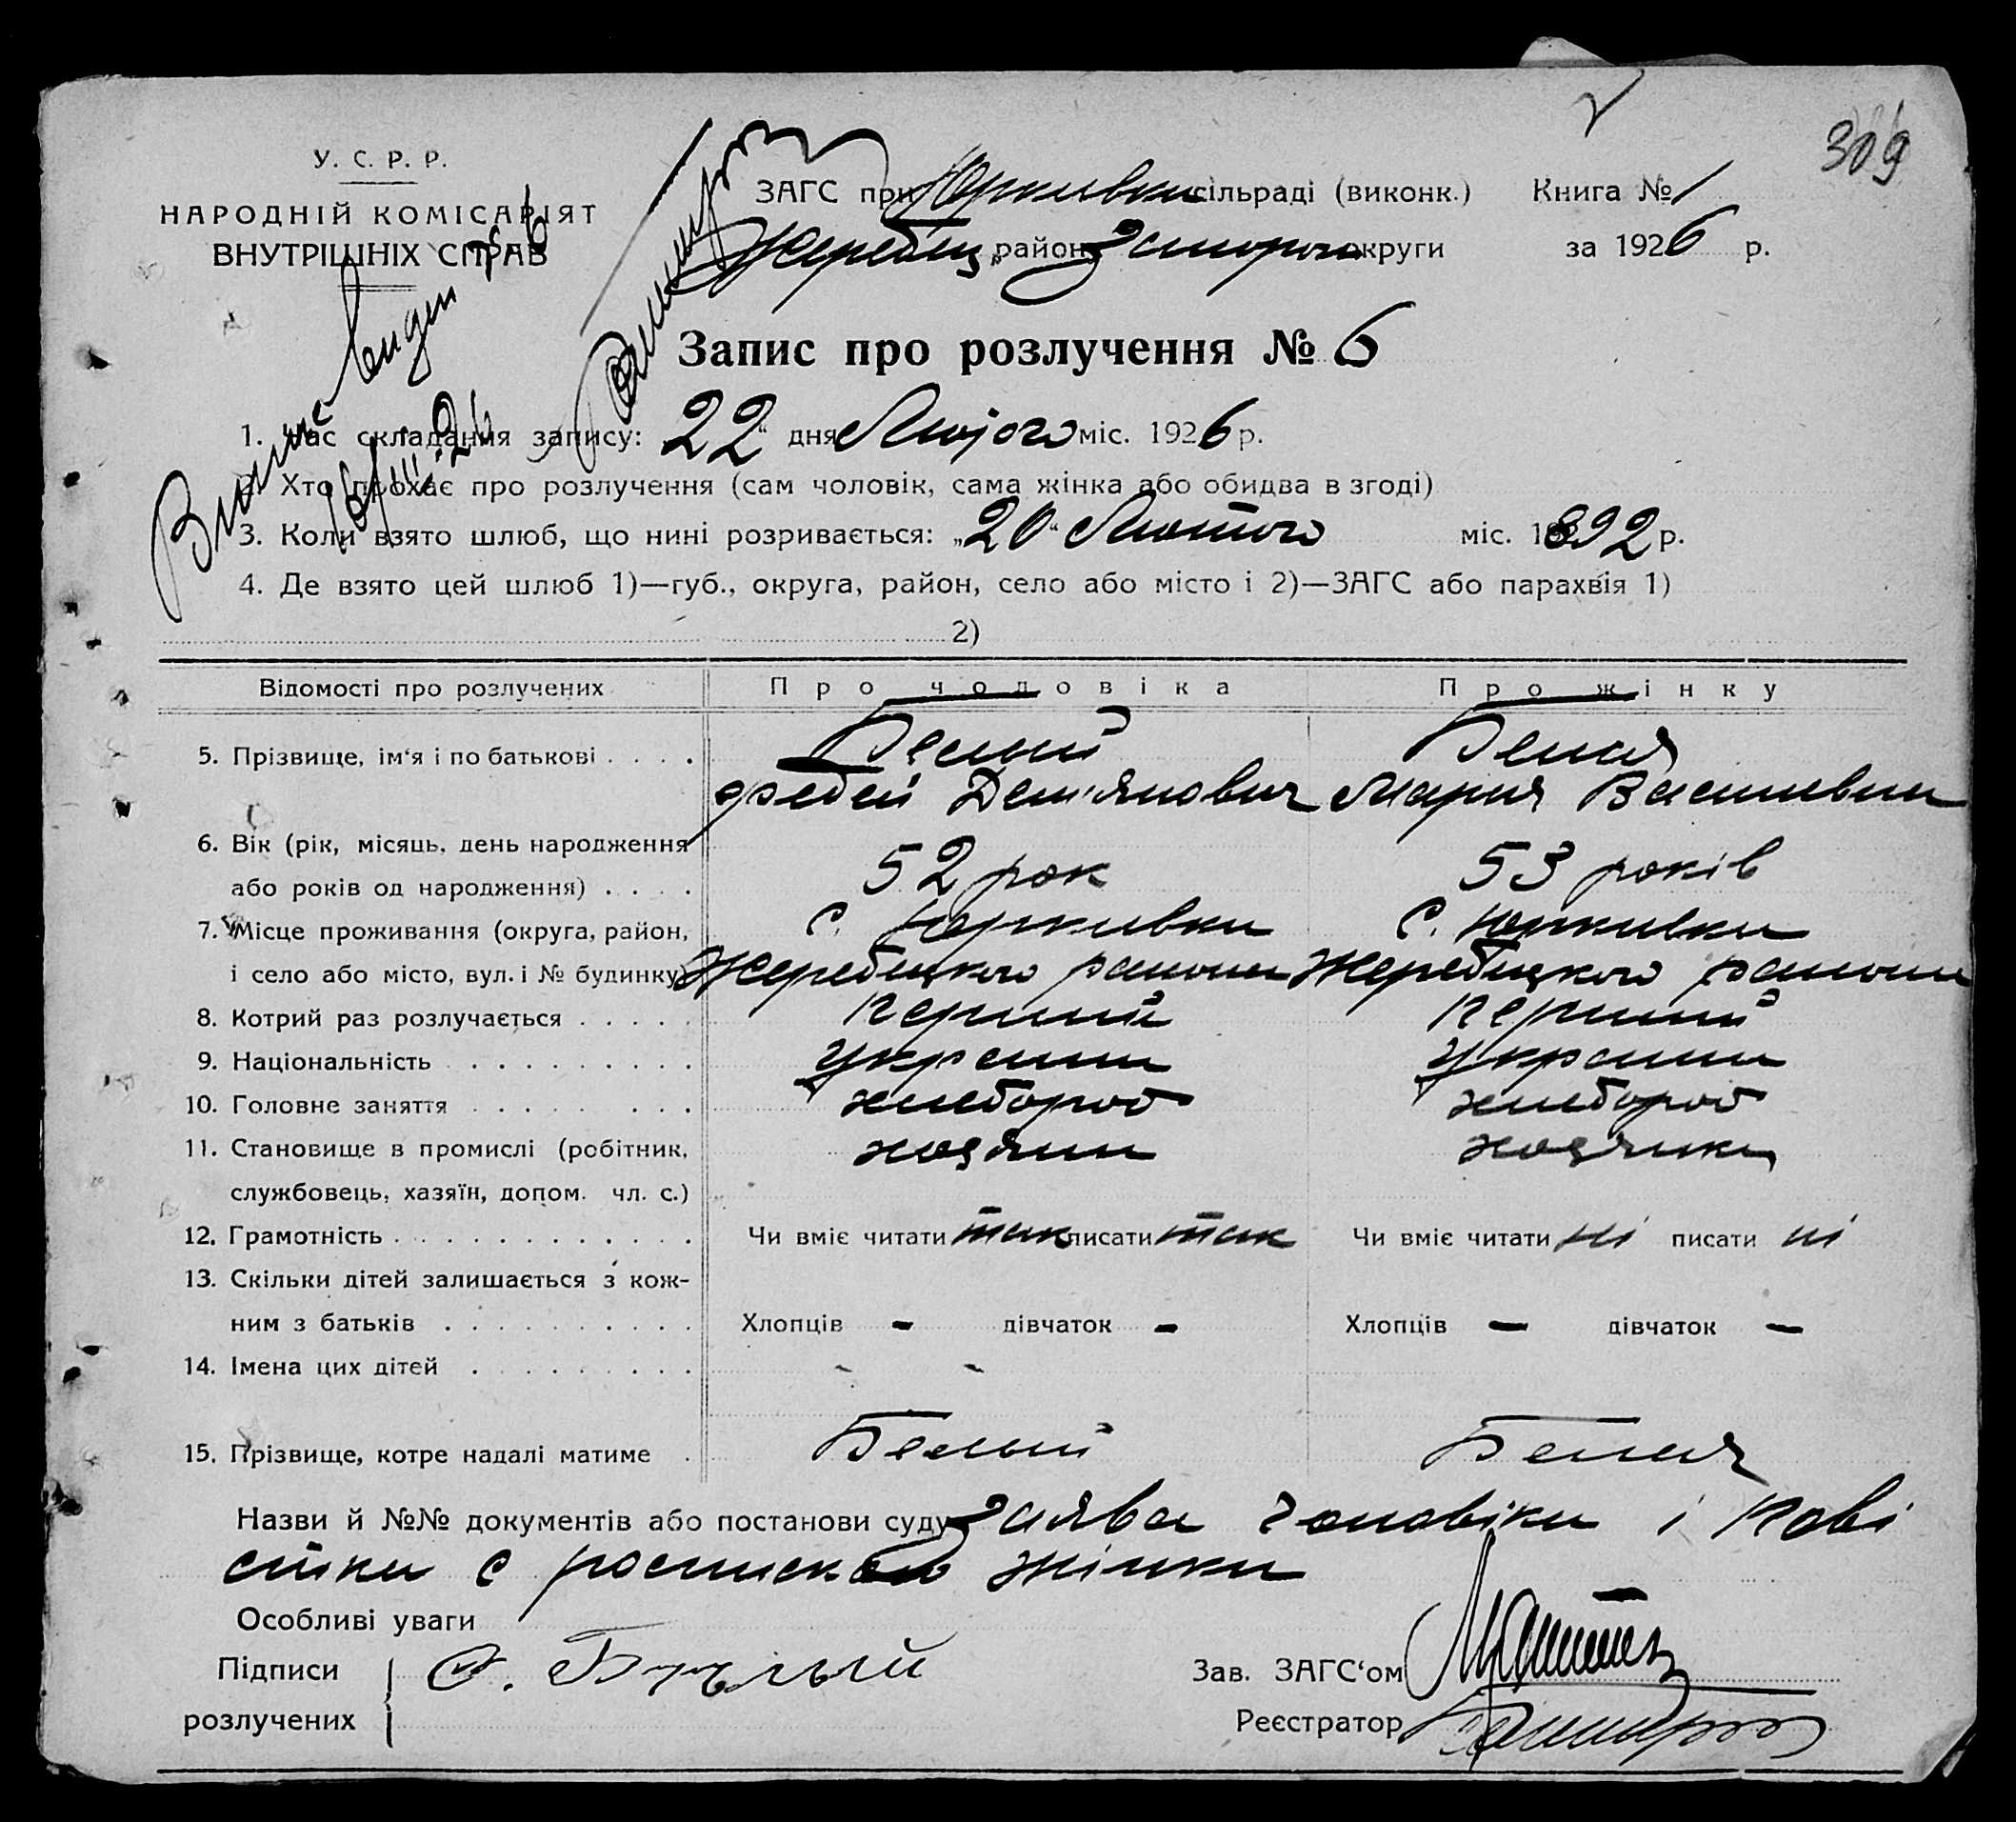 309
У. С. Р. Р.
НАРОДНІЙ КОМІСАРІЯТ
ВНУТРІШНІХ СПРАВ
ЗАГС при Юркивки сільраді (виконк.) Книга № 1
Жеребец район Запорож округи за 1926 р.
Запис про розлучення № 6
1. Час складання запису: 22" дня Лютого міс. 1926 р.
2. Хто прохає про розлучення (сам чоловік, сама жінка або обидва в згоді)
3. Коли взято шлюб, що нині розривається: „20" Лютого міс. 1892 р.
4. Де взято цей шлюб 1)—губ., округа, район, село або місто і 2)—ЗАГС або парахвія 1)
2)
Відомості про розлучених Про чоловіка Про жінку
5. Прізвище, ім‘я і по батькові Белый Белая
Демʼянович Мария Василевна
6. Вік (рік, місяць, день народження
або років од народження) 52 рок 53 років
7. Місце проживання (округа, район, с. Юркивки с. Юркивки
і село або місто, вул. і № будинку) Жеребецкого района Жеребецкого района
8. Котрий раз розлучається перший перший
9. Національність украин украин
10. Головне заняття хлебороб хлебороб
11. Становище в промислі (робітник, хозяин хозяйка
службовець, хазяїн, допом. чл. с.)
12. Грамотність Чи вміє читати так писати так Чи вміє читати ні писати ні
13. Скільки дітей залишається з кож-
ним з батьків Хлопців - дівчаток - Хлопців - дівчаток -
14. Імена цих дітей - -
15. Прізвище, котре надалі матиме Белый Белая
Назви й №№ документів або постанови суду заява чоловіка і пові
стка с роспискою жінки
Особливі уваги
Підписи розлучених Ф. Бѣлый
Зав. ЗАГС‘ом
Реєстратор